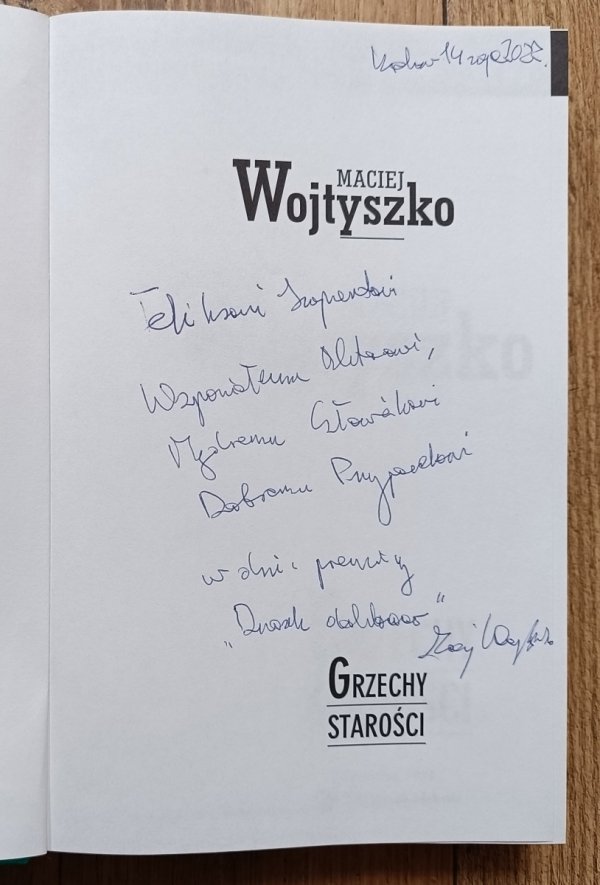 Kraków 14 maja 2022.
MACIEJ
Wojtyszko
Feliksowi Szajnertowi
Wspaniałemu Aktorowi,
Mądremu Człowiekowi
Dobremu Przyjacielowi
w dniu premiery
Maciej Wojtyszko
GRZECHY
STAROŚCI